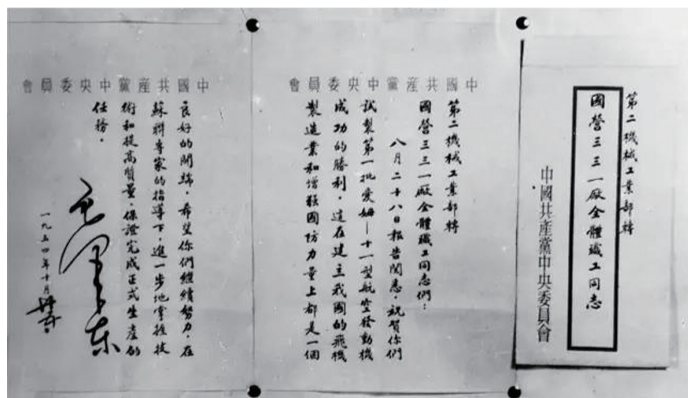 第二機械工業部轉
國營三三一厰全體職工同志
中國共產黨中央委員會
中國共產黨中央委員會
第二機械工業部轉
國營三三一厰全體職工同志們：
八月二十八日報告閱悉。祝賀你們
試製第一批愛姆—十一型航空發動機
成功的勝利。這在建立我國的飛機
製造業和增強國防力量上都是一個
中國共產黨中央委員會
良好的開端。希望你們繼續努力，在
蘇聯專家的指導下，進一步地掌握技
術和提高質量，保證完成正式生產的
任務。
毛澤東
一九五四年十月